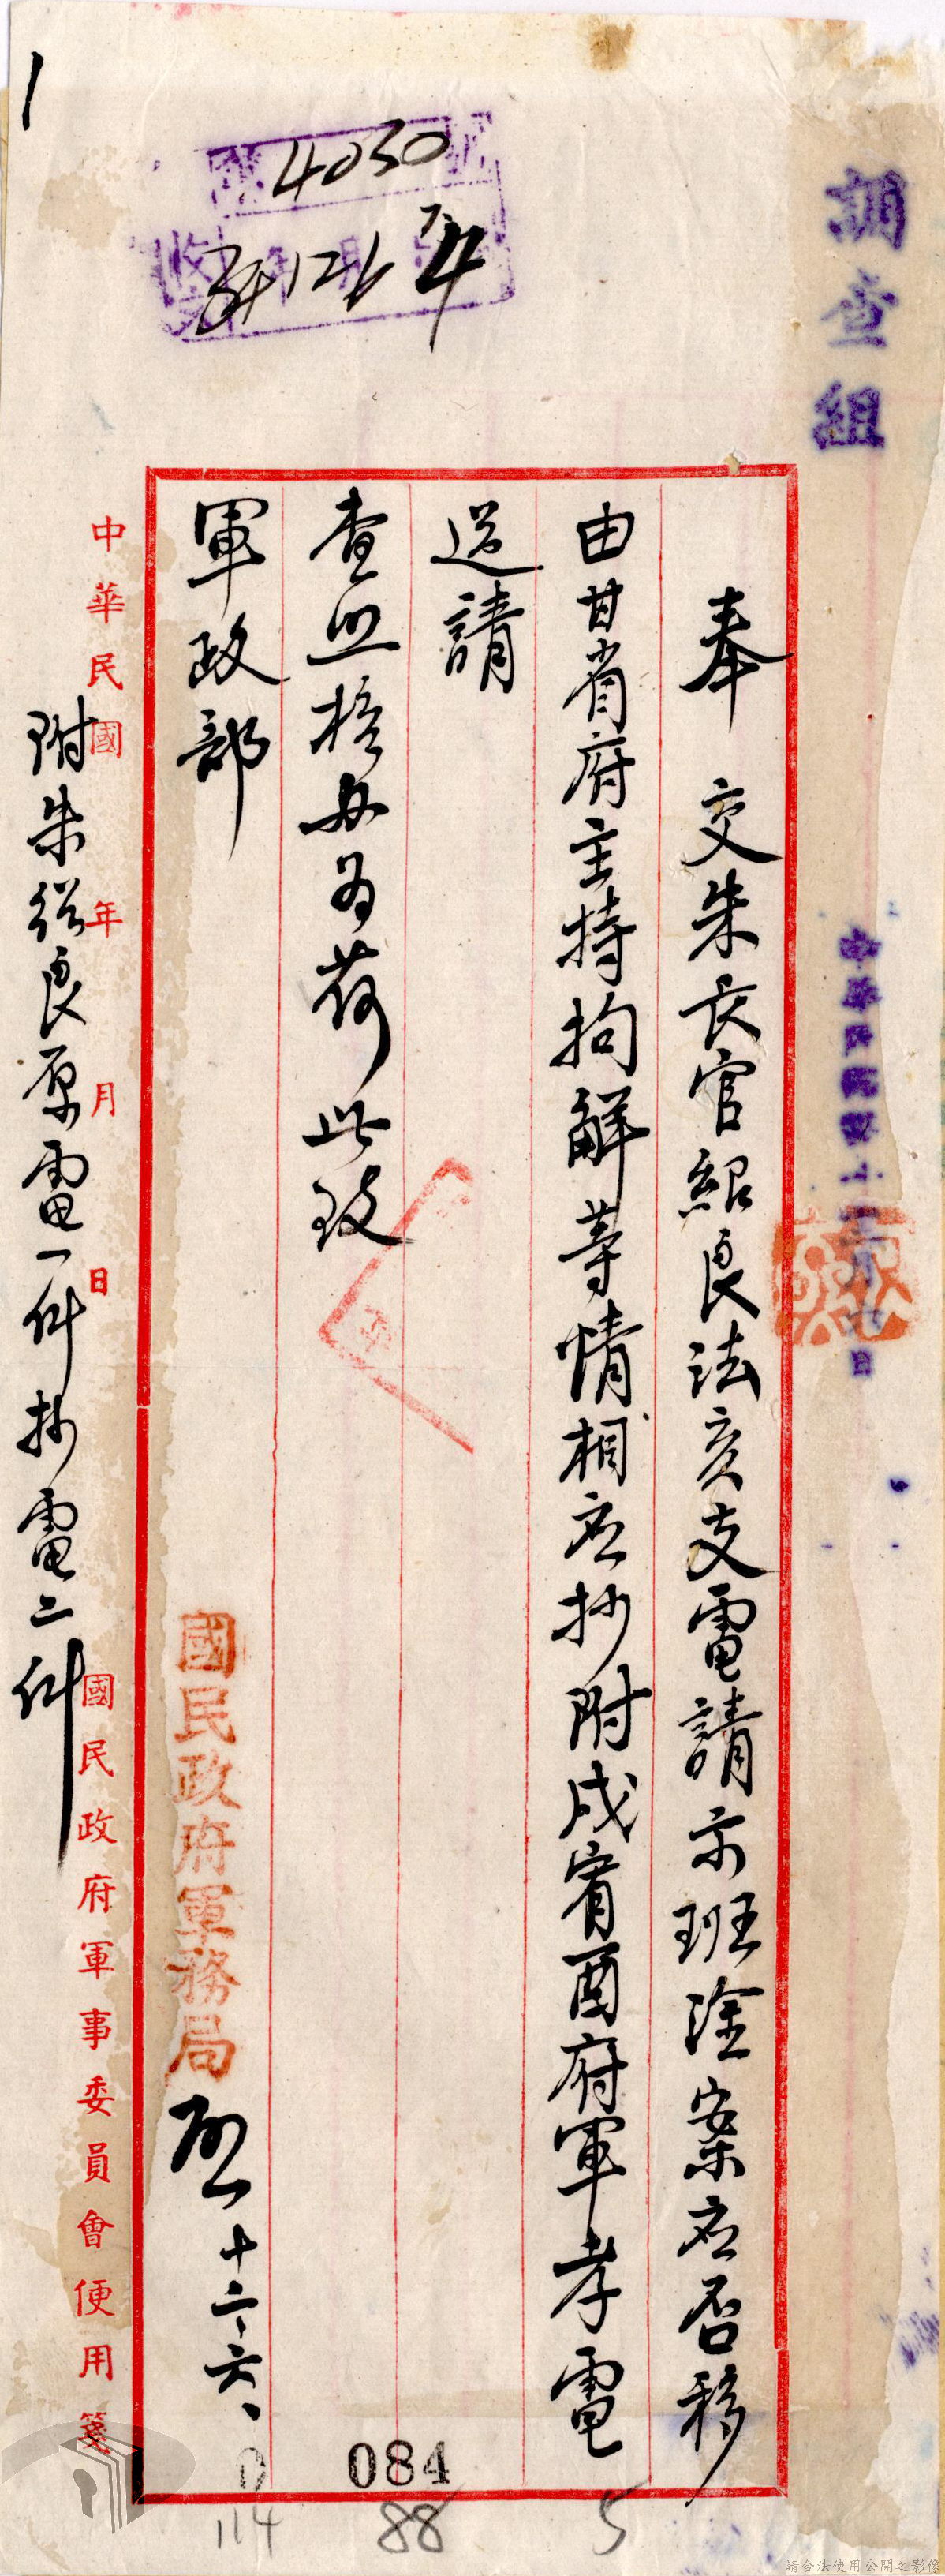 調查組
奉　交朱長官紹良法亥支電請示班淦案应否移
由甘省府主持拘解等情相应抄附戍宥酉府軍孝電
送請
查照核办为荷此致
軍政部
國民政府軍務局 啟 十二、六、
中華民國 年 月 日
國民政府軍事委員會便用箋
附朱紹良原電一件抄電二件
4030
34 12 6
1
084
88
114
5
請合法使用公開之影像